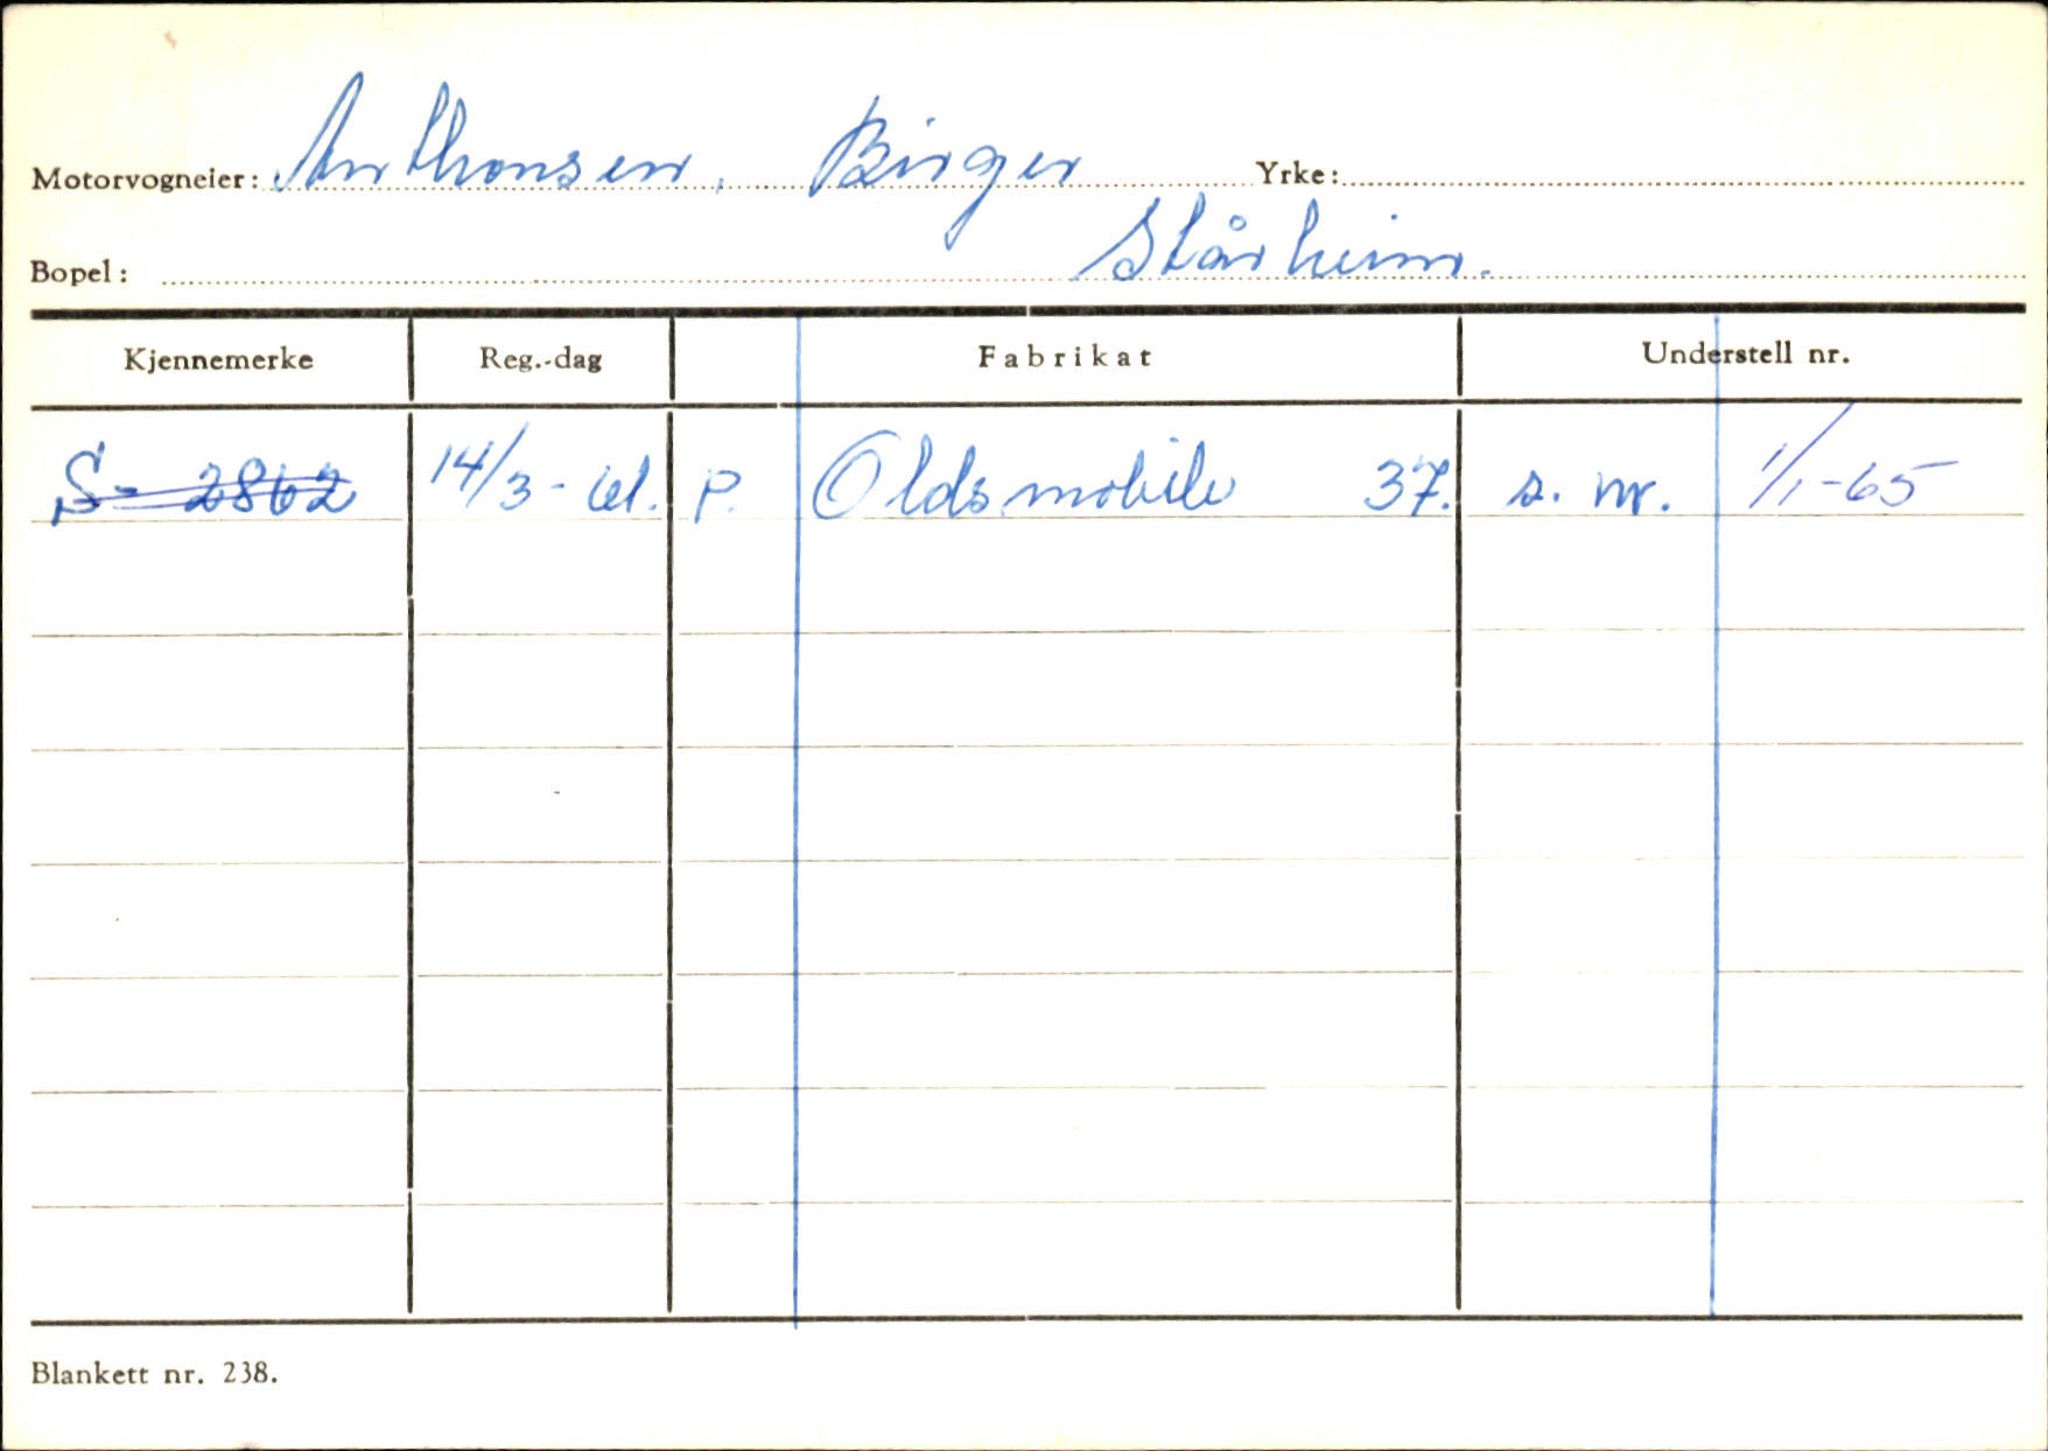 Motorvogneier: Anthonsen, Birger Yrke:
Bopel: Stårheim.
Kjennemerke Reg.-dag Fabrikat Understell nr.
S- 2862 14/3-61. P. Oldsmobile 37. s. nr. 1/1-65
Blankett nr. 238.